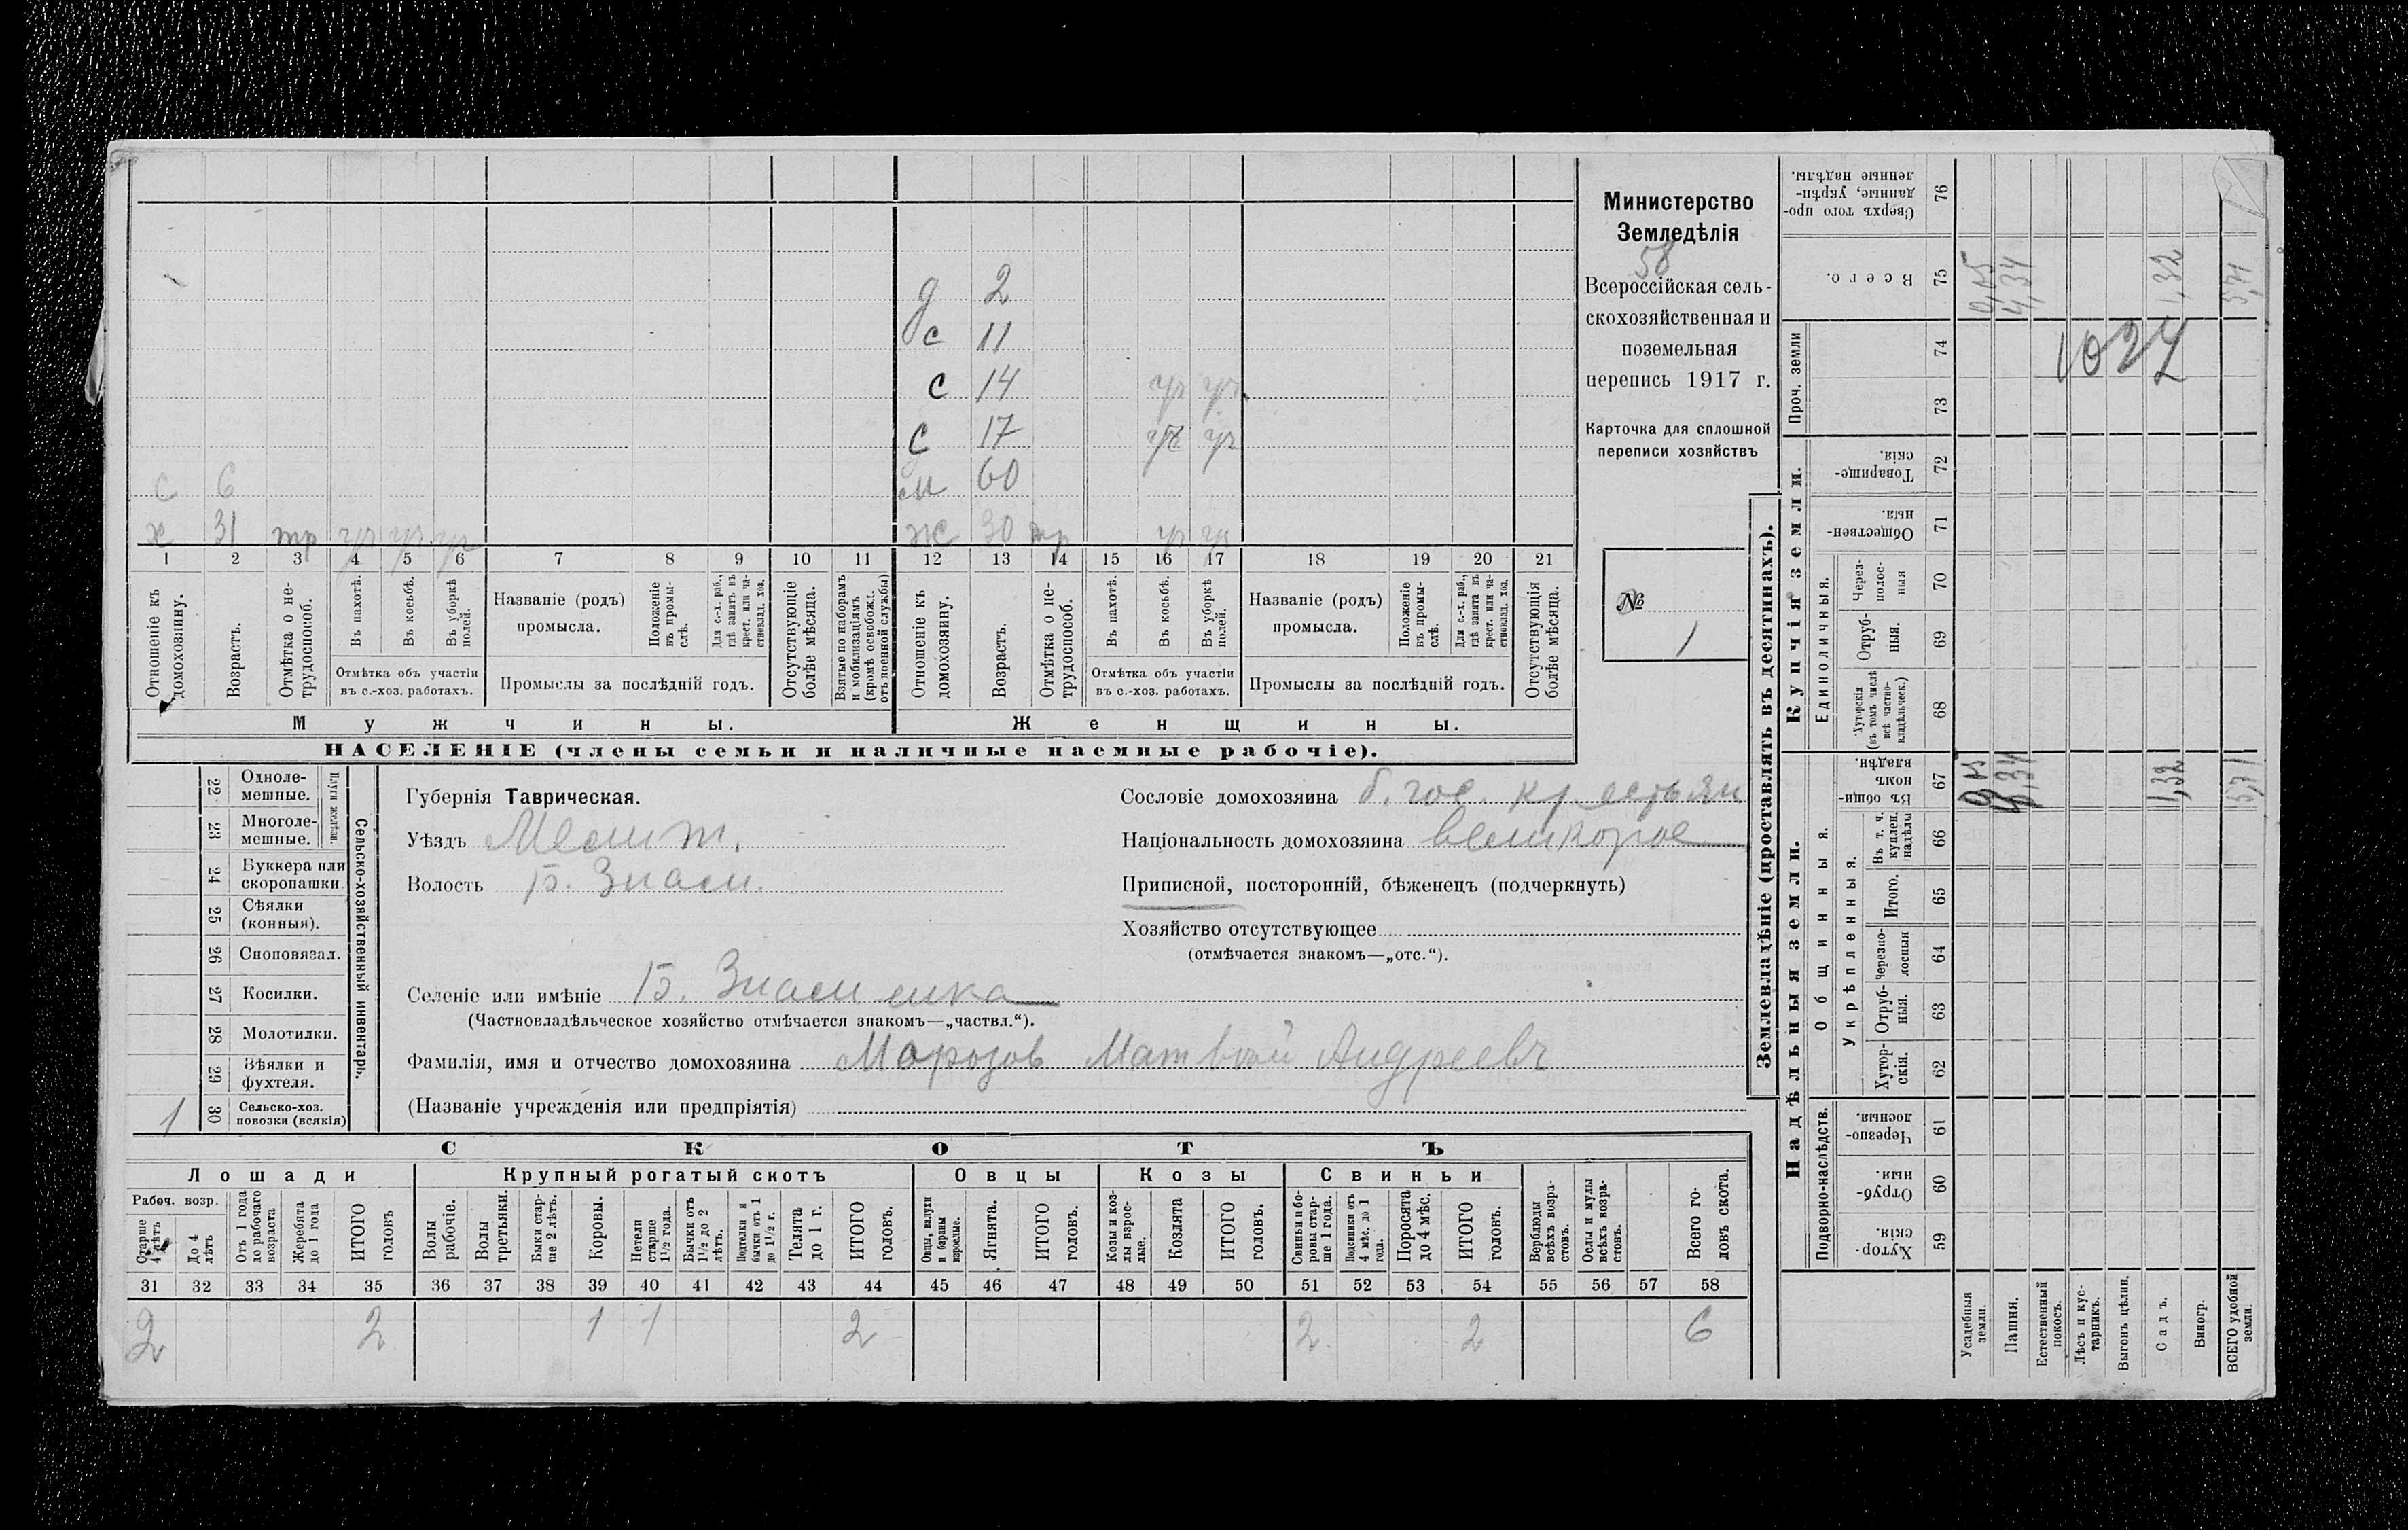 Министерство
Земледѣлія
58
Всероссійская сель-
скохозяйственная и
поземельная
перепись 1917 г.
Карточка для сплошной
переписи хозяйствъ
№
1
д 2
с 11
с 14 уч уч
с 17 уч уч
с 6 м 60
х 31 тр уч уч уч ж 30 тр уч уч
1 2 3 4 5 6 7 8 9 10 11 12 13 14 15 16 17 18 19 20 21
Отношеніе къ домохозяину.
Возрастъ.
Отмѣтка о не-трудоспособ.
Въ пахотѣ.
Въ косьбѣ.
Въ уборкѣ полей.
Отмѣтка объ участіи въ с.-хоз. работахъ.
Названіе (родъ) промысла.
Положеніе въ промы-слѣ.
Для с.-х. раб., гдѣ занятъ въ крест. или ча-стновлад. хоз.
Промыслы за послѣдній годъ.
Отсутствующіе болѣе мѣсяца.
Взятые по наборамъ и мобилизаціямъ (кромѣ освобожд. отъ военной службы)
Отношеніе къ домохозяину.
Возрастъ.
Отмѣтка о не-трудоспособ.
Въ пахотѣ.
Въ косьбѣ.
Въ уборкѣ полей.
Отмѣтка объ участіи въ с.-хоз. работахъ.
Названіе (родъ) промысла.
Положеніе въ промы-слѣ.
Для с.-х. раб., гдѣ занята въ крест. или ча-стновлад. хоз.
Промыслы за послѣдній годъ.
Отсутствующія болѣе мѣсяца.
Мужчины. Женщины.
НАСЕЛЕНІЕ (члены семьи и наличные наемные рабочіе).
22 Одноле-мешные.
23 Многоле-мешные.
Плуги желѣзн.
24 Буккера или скоропашки.
25 Сѣялки (конныя).
26 Сноповязал.
27 Косилки.
28 Молотилки.
29 Вѣялки и фухтеля.
1 30 Сельско-хоз. повозки (всякія)
Сельско-хозяйственный инвентарь.
Губернія Таврическая.
Уѣздъ Мелит.
Волость Б. Знам.
Селеніе или имѣніе Б. Знаменка
(Частновладѣльческое хозяйство отмѣчается знакомъ—„частвл.“).
Фамилія, имя и отчество домохозяина Морозов Матвѣй Андреевъ
(Названіе учрежденія или предпріятія)
Сословіе домохозяина б. гос. крестьян
Національность домохозяина великорос
Приписной, посторонній, бѣженецъ (подчеркнуть)
Хозяйство отсутствующее
(отмѣчается знакомъ—„отс.“).
СКОТЪ
Лошади Крупный рогатый скотъ Овцы Козы Свиньи
Рабоч. возр.
Старше 4 лѣтъ
До 4 лѣтъ
Отъ 1 года до рабочаго возраста
Жеребята до 1 года
ИТОГО головъ
Волы рабочіе.
Волы третьяки.
Быки стар-ше 2 лѣтъ.
Коровы.
Нетели старше 1 1/2 года.
Бычки отъ 1 1/2 до 2 лѣтъ.
Подтелки и бычки отъ 1 до 1 1/2 г.
Телята до 1 г.
ИТОГО головъ.
Овцы, валухи и бараны взрослые.
Ягнята.
ИТОГО головъ.
Козы и коз-лы взрос-лые.
Козлята
ИТОГО головъ.
Свиньи и бо-ровы стар-ше 1 года.
Подсвинки отъ 4 мѣс. до 1 года.
Поросята до 4 мѣс.
ИТОГО головъ.
Верблюды всѣхъ возра-стовъ.
Ослы и мулы всѣхъ возра-стовъ.
Всего го-ловъ скота.
31 32 33 34 35 36 37 38 39 40 41 42 43 44 45 46 47 48 49 50 51 52 53 54 55 56 57 58
2 2 1 1 2 2 2 6
Землевладѣніе (проставлять въ десятинахъ).
Надѣльныя земли.
Купчія земли.
Проч. земли
Подворно-наслѣдств.
Общинныя.
Укрѣпленныя.
Единоличныя.
Хутор-скія. 59
Отруб-ныя. 60
Черезпо-лосныя 61
Хутор-скія. 62
Отруб-ныя. 63
Черезпо-лосныя 64
Итого. 65
Въ т. ч. куплен. надѣлы 66
Въ общи-номъ владѣн. 67
Хуторскія (въ томъ числѣ всѣ частно-владѣльческ.) 68
Отруб-ныя. 69
Через-полос-ныя 70
Обществен-ныя. 71
Товарище-скія. 72
73
74
Всего. 75
Сверхъ того про-данные, укрѣп-ленные надѣлы. 76
Усадебныя земли.
Пашня.
Естественный покосъ.
Лѣсъ и кус-тарникъ.
Выгонъ цѣлин.
Садъ.
Виногр.
ВСЕГО удобной земли.
4,34 1,32 5,71
4,34 1,32 5,71
1027